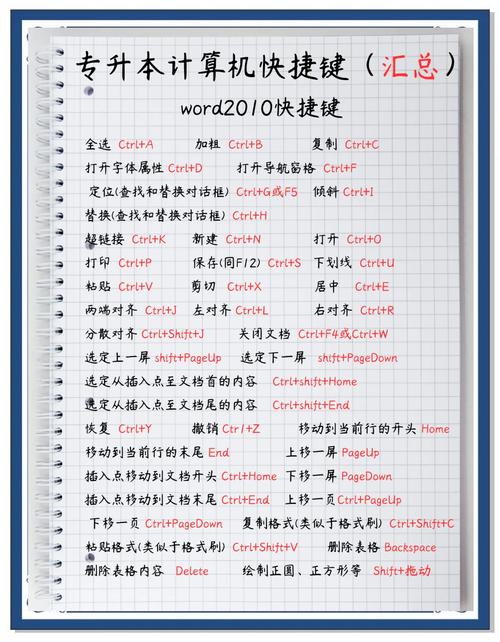 专升本计算机快捷键（汇总）
word2010快捷键
全选 Ctrl+A 加粗 Ctrl+B 复制 Ctrl+C
打开字体属性 Ctrl+D 打开导航窗格 Ctrl+F
定位(查找和替换对话框) Ctrl+G或F5 倾斜 Ctrl+I
替换(查找和替换对话框) Ctrl+H
超链接 Ctrl+K 新建 Ctrl+N 打开 Ctrl+O
打印 Ctrl+P 保存(同F12) Ctrl+S 下划线 Ctrl+U
粘贴 Ctrl+V 剪切 Ctrl+X 居中 Ctrl+E
两端对齐 Ctrl+J 左对齐 Ctrl+L 右对齐 Ctrl+R
分散对齐 Ctrl+Shift+J 关闭文档 Ctrl+F4或Ctrl+W
选定上一屏 shift+PageUp 选定下一屏 shift+PageDown
选定从插入点至文档首的内容 Ctrl+shift+Home
选定从插入点至文档尾的内容 Ctrl+shift+End
恢复 Ctrl+Y 撤销 Ctr1+Z 移动到当前行的开头 Home
移动到当前行的末尾 End 上移一屏 PageUp
插入点移动到文档开头 Ctrl+Home 下移一屏 PageDown
插入点移动到文档末尾 Ctrl+End 上移一页 Ctrl+PageUp
下移一页 Ctrl+PageDown 复制格式(类似于格式刷) Ctrl+Shift+C
粘贴格式(类似于格式刷) Ctrl+Shift+V 删除表格 Backspace
删除表格内容 Delete 绘制正圆、正方形等 Shift+拖动